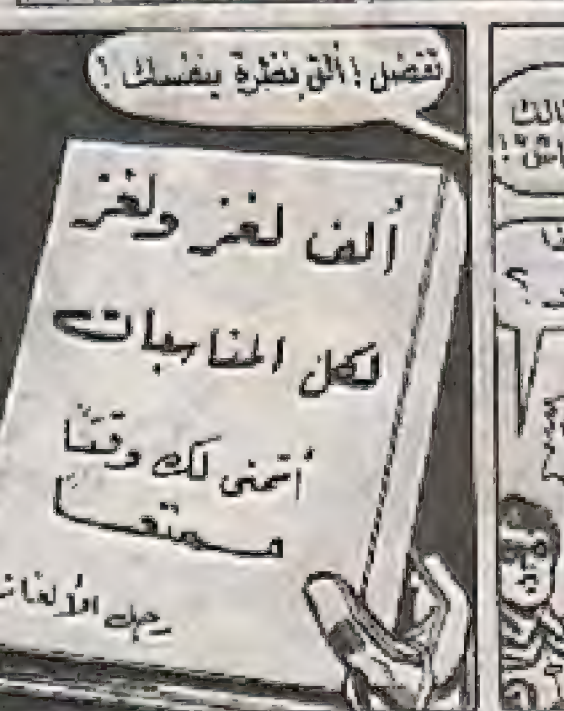 تفضل ! ألق نظرة بنفسك !
ألف لغز ولغز
لكل المناسبات
أتمنى لك وقتًا
ممتعـا
رجل الألغاز